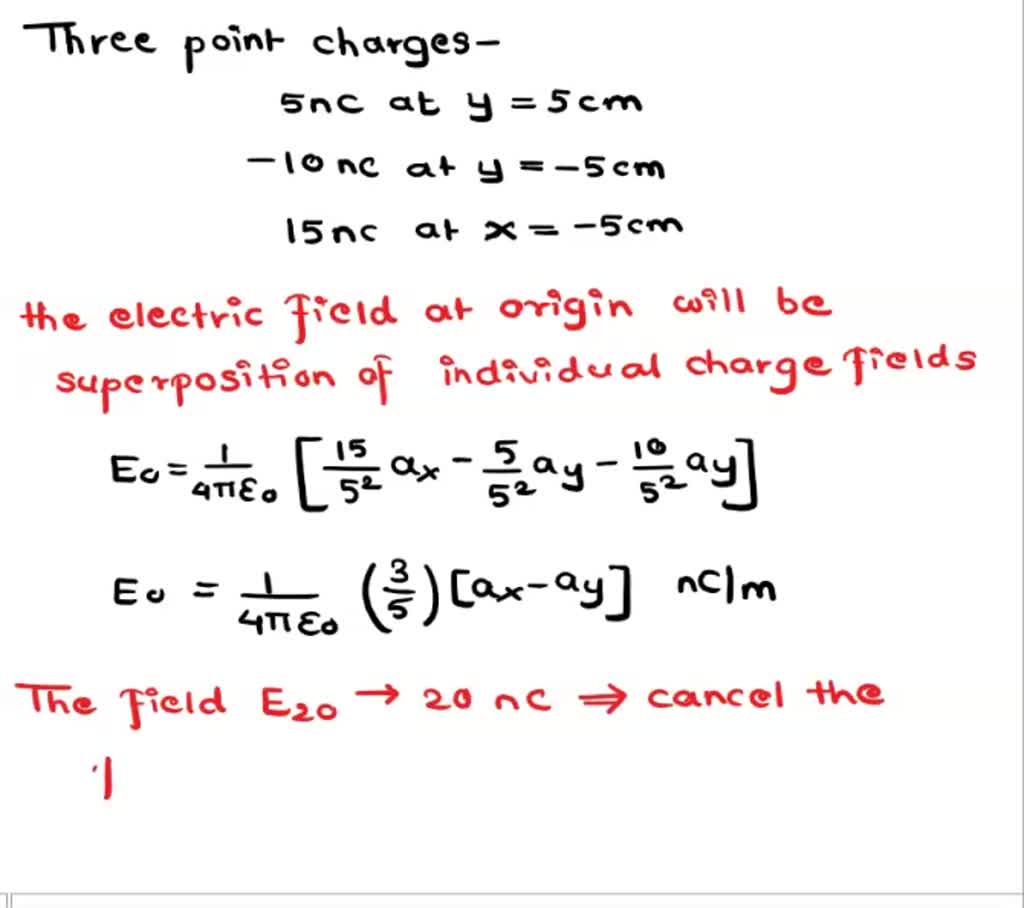 Three point charges-
5nc at y = 5cm
-10 nc at y = -5cm
15nc at x = -5cm
the electric field at origin will be
superposition of individual charge fields
E0 = 1/4πε0 [15/5² ax - 5/5² ay - 10/5² ay]
E0 = 1/4πε0 (3/5) [ax-ay] nC/m
The field E20 → 20 nC ⇒ cancel the